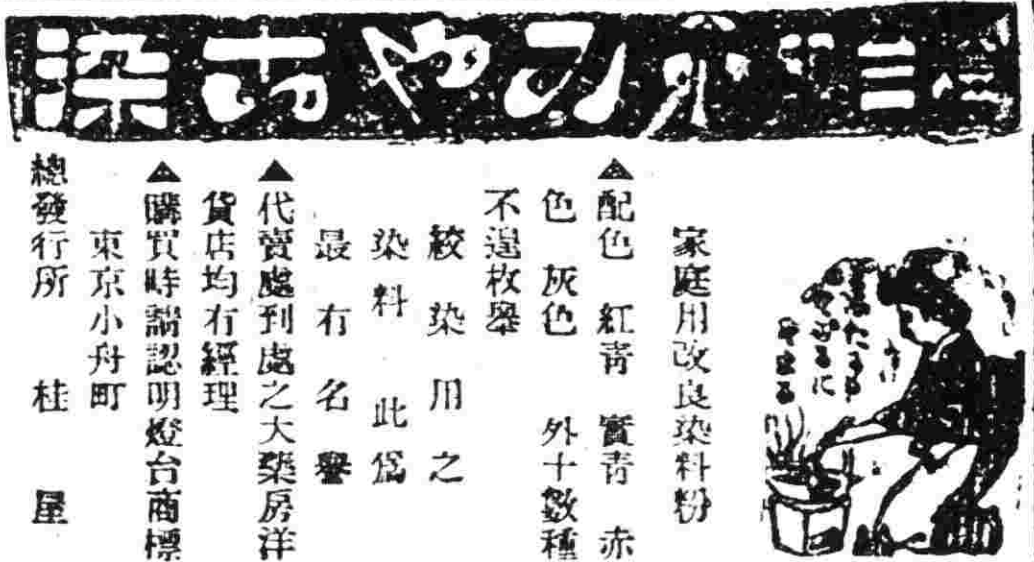 みや古染
家庭用改良染料粉
▲配色 紅青 寶青 赤
色 灰色 外十數種
不遑枚舉
絞染用之
染料 此爲
最有名譽
▲代賣處到處之大藥房洋
貨店均有經理
▲購買時請認明燈台商標
東京小舟町
總發行所 桂屋